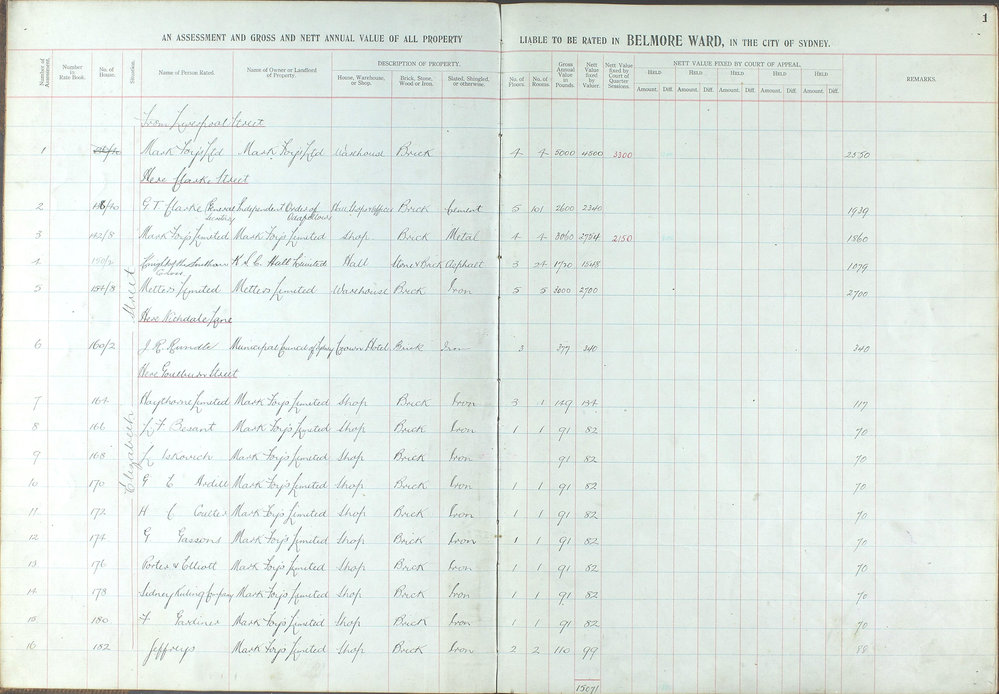 1
AN ASSESSMENT AND GROSS AND NETT ANNUAL VALUE OF ALL PROPERTY LIABLE TO BE RATED IN BELMORE WARD, IN THE CITY OF SYDNEY.
Number of Assessment. Number in Rate Book. No. of House. Situation. Name of Person Rated. Name of Owner or Landlord of Property. DESCRIPTION OF PROPERTY. House, Warehouse, or Shop. Brick, Stone, Wood or Iron. Slated, Shingled, or otherwise. No. of Floors. No. of Rooms. Gross Annual Value in Pounds. Nett Value fixed by Valuer. Nett Value fixed by Court of Quarter Sessions. NETT VALUE FIXED BY COURT OF APPEAL. HELD HELD HELD HELD HELD Amount. Diff. Amount. Diff. Amount. Diff. Amount. Diff. Amount. Diff. REMARKS.
Elizabeth Street
From Liverpool Street
1 Mark Foy's Ltd Mark Foy's Ltd Warehouse Brick 4 4 5000 4500 3300 2550
Here Clarke Street
2 G T Clarke General Secretary Independent Order of Oddfellows Hall Shops & Offices Brick Cement 5 101 2600 2340 1939
3 142/8 Mark Foy's Limited Mark Foy's Limited Shop Brick Metal 4 4 3060 2754 2150 1860
4 150/2 Knights of the Southern Cross K.S.C. Hall Limited Hall Stone & Brick Asphalt 3 24 1720 1548 1079
5 154/8 Metters Limited Metters Limited Warehouse Brick Iron 5 5 3000 2700 2700
Here Nithdale Lane
6 160/2 J. R. Rundle Municipal Council of Sydney Crown Hotel Brick Iron 3 377 340 340
Here Goulburn Street
7 164 Haythorne Limited Mark Foy's Limited Shop Brick Iron 3 1 149 134 117
8 166 Besant Mark Foy's Limited Shop Brick Iron 1 1 91 82 70
9 168 Iskovich Mark Foy's Limited Shop Brick Iron 91 82 70
10 170 G E Ardill Mark Foy's Limited Shop Brick Iron 1 1 91 82 70
11 172 H C Coulter Mark Foy's Limited Shop Brick Iron 1 1 91 82 70
12 174 G Gassons Mark Foy's Limited Shop Brick Iron 1 1 91 82 70
13 176 Porter & Elliott Mark Foy's Limited Shop Brick Iron 1 1 91 82 70
14 178 Sidney Riding Company Mark Foy's Limited Shop Brick Iron 1 1 91 82 70
15 180 F Gardiner Mark Foy's Limited Shop Brick Iron 1 1 91 82 70
16 182 Jeffreys Mark Foy's Limited Shop Brick Iron 2 2 110 99 88
15071